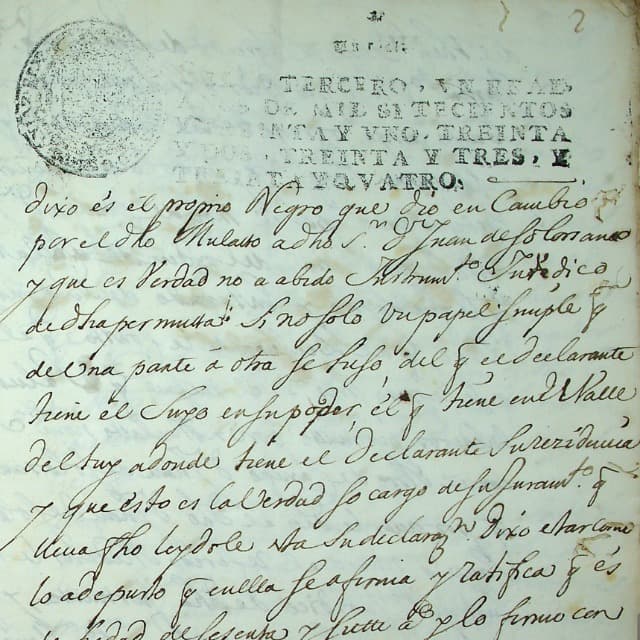 2
TERCERO, VN REAL,
DE MIL SETECIENTOS
Y TREINTA Y VNO, TREINTA
Y DOS, TREINTA Y TRES, Y
TREINTA Y QVATRO.
dixo és el proprio Negro que dió en Cambio
por el dho Mulatto a dho S.r D.n Juan de Solorsano
y que es Verdad no a abido Instrum.to Juridico
de dha permutta Si no solo Un papel simple q
de Una parte á otra se hiso, del q el declarante
tiene el Suyo en su poder, él q tiene en el Valle
del tuy adonde tiene el Declarante Su rezidencia
y que esto es la Verdad so cargo de su Juram.to q
lleva fho leydole esta su declaraz.n Dixo estar como
lo a depuesto q en ella se afirma y ratifica q és
de hedad de sesenta y Siette a.s y lo firmó con